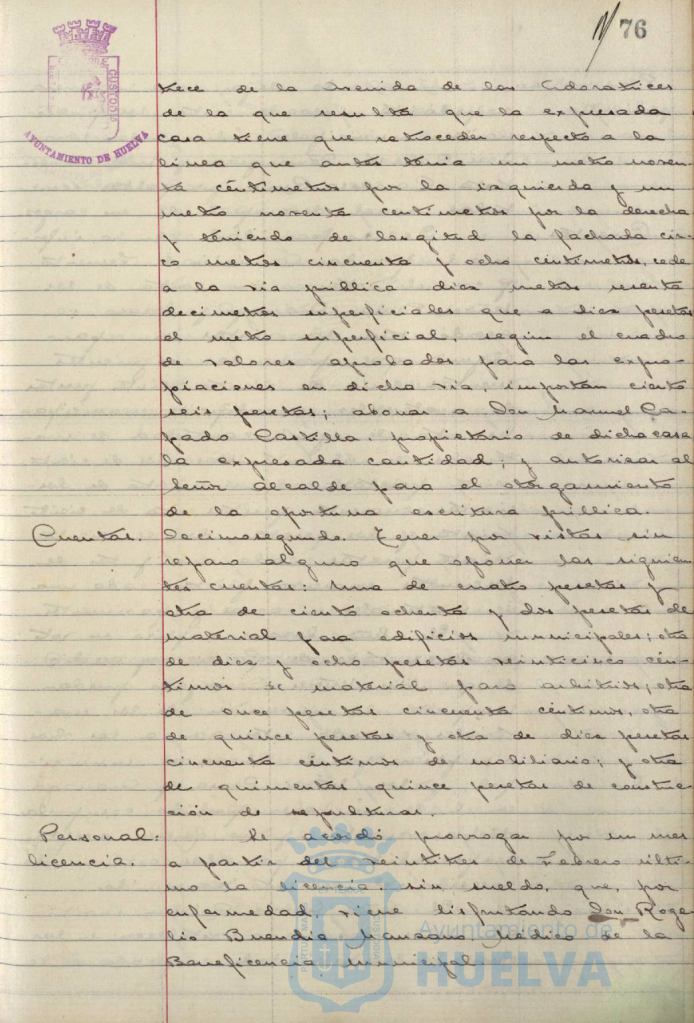 76
CUSTODIA
AYUNTAMIENTO DE HUELVA
trece de la Avenida de las Adoratrices
de la que resulta que la expresada
casa tiene que retroceder respecto a la
linea que antes tenia un metro noven-
ta céntimetros por la izquierda y un
metro noventa centimetros por la derecha
y teniendo de longitud la fachada cin-
co metros cincuenta y ocho céntimetros, cede
a la via pública diez metros sesenta
decimetros superficiales que a diez pesetas
el metro superficial, según el cuadro
de valores aprobados para las expro-
piaciones en dicha via, importan ciento
seis pesetas; abonar a Don Manuel Ca-
pado Castilla, propietario de dicha casa
la expresada cantidad; y autorizar al
Señor Alcalde para el otorgamiento
de la oportuna escritura pública.
Cuentas.
Decimosegundo. Tener por vistas sin
reparo alguno que oponer las siguien
tes cuentas: Una de cuatro pesetas y
otra de ciento ochenta y dos pesetas de
material para edificios municipales; otra
de diez y ocho pesetas veinticinco cén-
timos de material para arbitrios; otra
de once pesetas cincuenta céntimos, otra
de quince pesetas y otra de diez pesetas
cincuenta céntimos de mobiliario; y otra
de quinientas quince pesetas de construc-
ción de sepulturas.
Personal:
licencia.
Se acordó prorrogar por un mes
a partir del veintitres de Febrero últi-
mo la licencia, sin sueldo, que, por
enfermedad, viene disfrutando Don Roge
lio Buendia Manzano, Médico de la
Beneficencia Municipal.
Ayuntamiento de
HUELVA